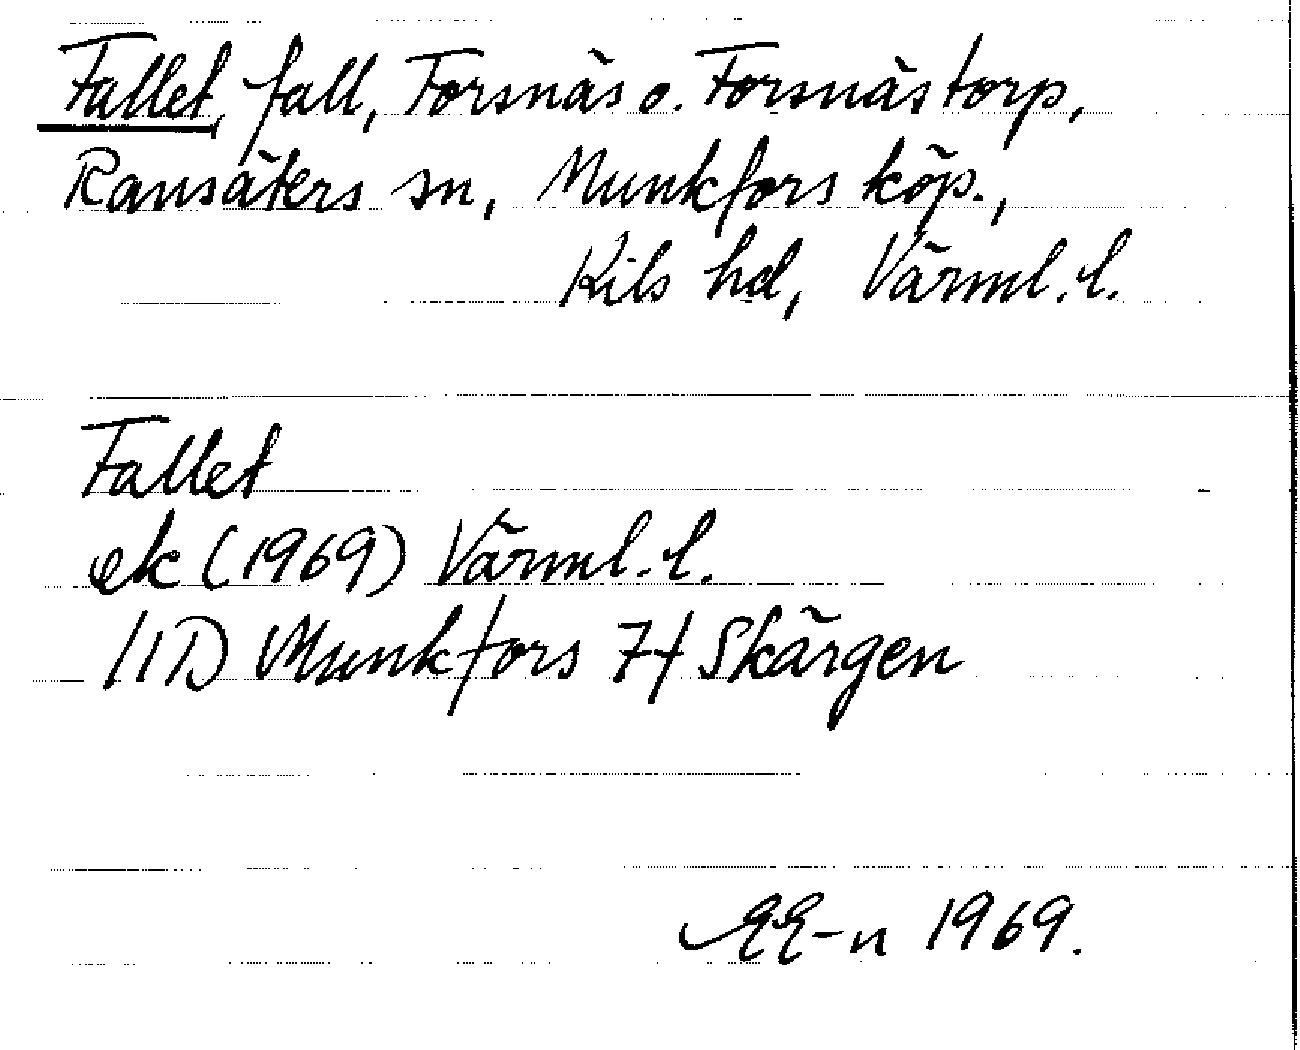 Fallet, fall, Forsnäs o. Forsnästorp,
Ransäters sn, Munkfors köp.,
Kils hd, Värml. l.
Fallet
ek (1969) Värml. l.
11D Munkfors 7f Skärgen
EE-n 1969.